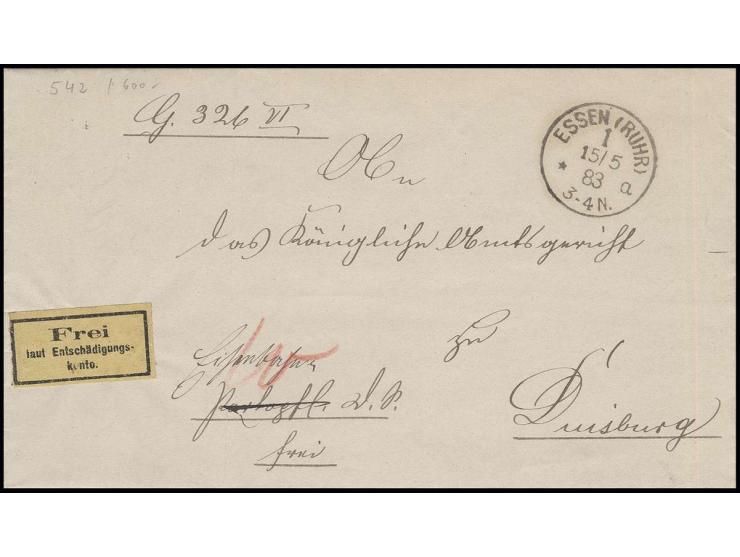 542 1600.-
G. 326 VI
ESSEN (RUHR)
1
15/5
83
* a
3-4 N.
An
das Königliche Amtsgericht
Frei
laut Entschädigungs-
konto.
zu
Eisenbahn
Portopfl. D. S.
Duisburg
frei